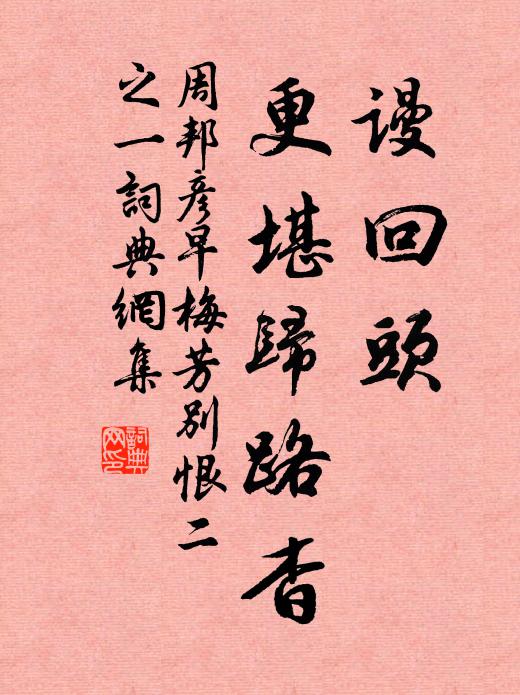 謾回頭
更堪歸路杳
周邦彥早梅芳別恨二
之一詞典網集
詞典
网印